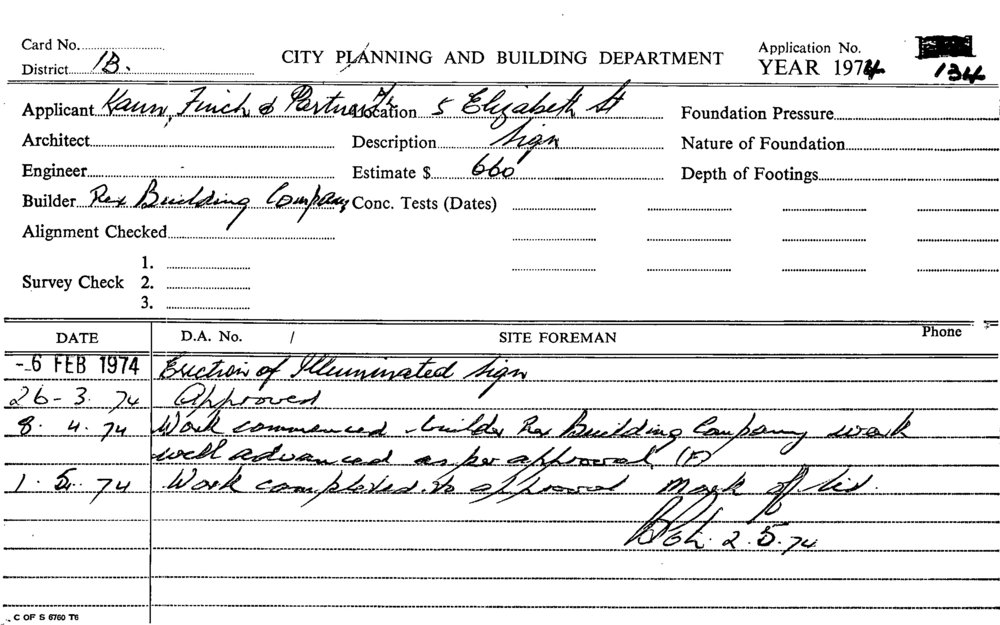 Card No.
CITY PLANNING AND BUILDING DEPARTMENT
Application No.
District 1B.
YEAR 1974
134
Applicant Kann, Finch & Partners
Location 5 Elizabeth St
Foundation Pressure
Architect
Description Sign
Nature of Foundation
Engineer
Estimate $ 660
Depth of Footings
Builder Rex Building Company
Conc. Tests (Dates)
Alignment Checked
1.
Survey Check 2.
3.
DATE
D.A. No. /
SITE FOREMAN
Phone
-6 FEB 1974 Erection of Illuminated Sign
26-3.74 Approved
8.4.74 Work commenced - builder Rex Building Company work
well advanced as per approval (F)
1.5.74 Work completed to approval Mark off list.
2.5.74
C OF S 6760 T6